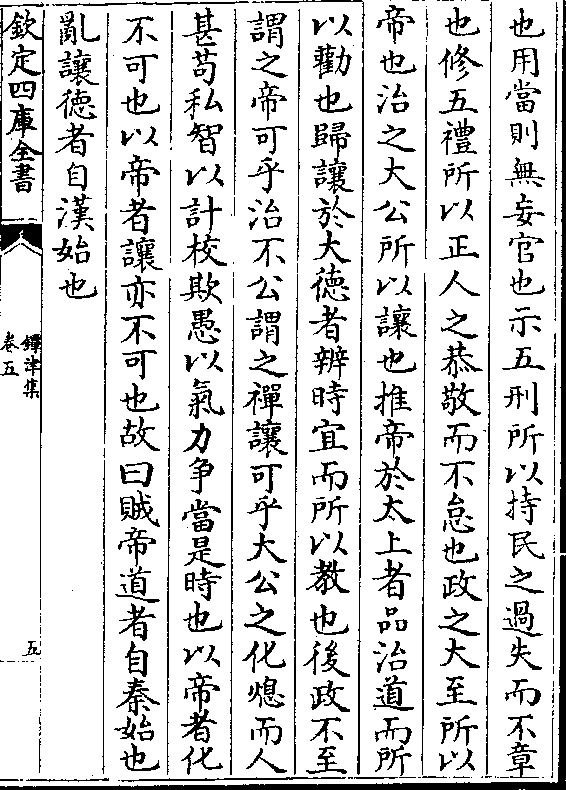 也用當則無妄官也示五刑所以持民之過失而不章
也修五禮所以正人之恭敬而不怠也政之大至所以
帝也治之大公所以讓也推帝於太上者品治道而所
以勸也歸讓於大德者辨時宜而所以教也後政不至
謂之帝可乎治不公謂之禪讓可乎大公之化熄而人
甚苟私智以計校欺愚以氣力争當是時也以帝者化
不可也以帝者讓亦不可也故曰賊帝道者自秦始也
亂讓徳者自漢始也
欽定四庫全書
鐔津集
卷五
五